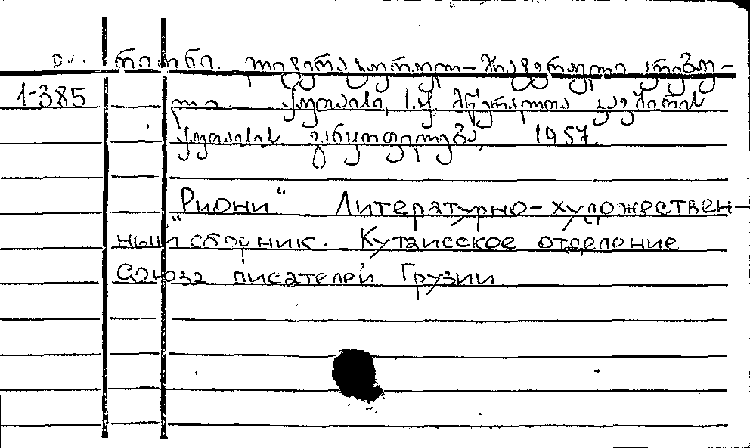 რიონი. ლიტერატურულ-მხატვრული კრებუ-
1-385 ლი ქუთაისი, ს.ს. მწერალთა კავშირის
ქუთაისის განყოფილება, 1957.
"Риони" Литературно-художествен-
ный сборник. Кутаисское отделение
Союза писателей Грузии